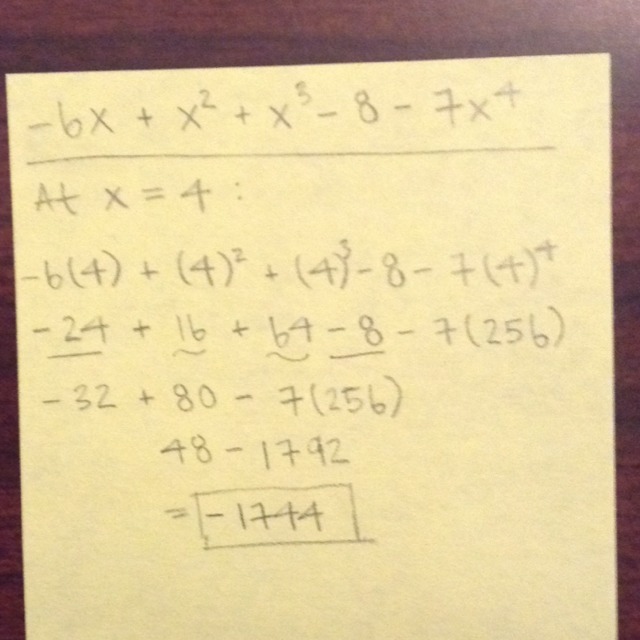 -6x + x² + x³ - 8 - 7x⁴
At x = 4 :
-6(4) + (4)² + (4)³ - 8 - 7(4)⁴
-24 + 16 + 64 - 8 - 7(256)
-32 + 80 - 7(256)
48 - 1792
= -1744